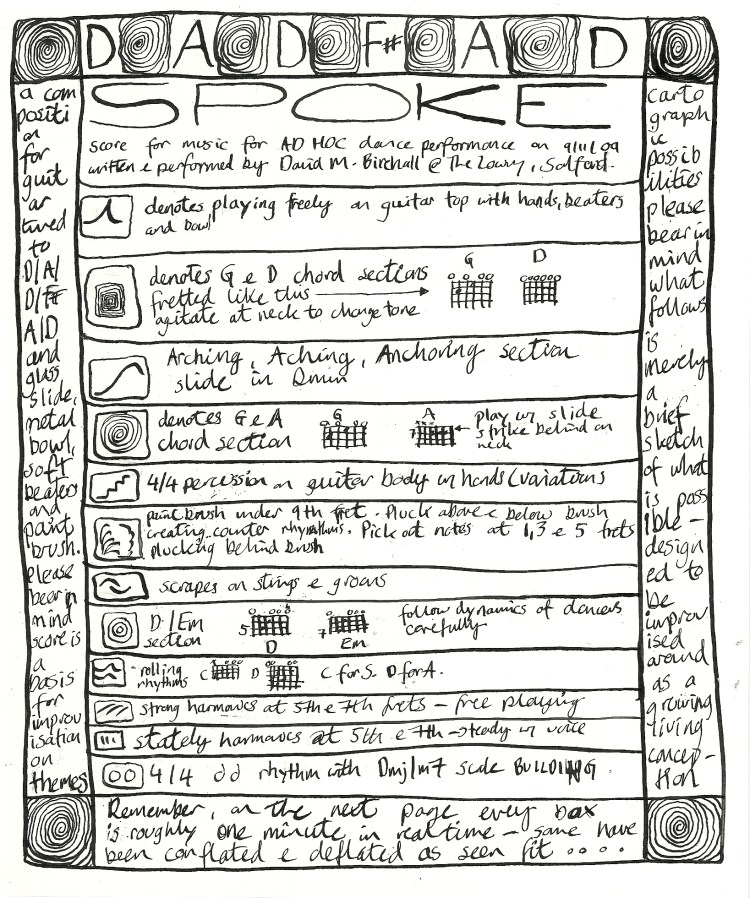 D A D F# A D
SPOKE
score for music for AD HOC dance performance on 9/11/09
written & performed by David M. Birchall @ The Lowry, Salford.
denotes playing freely on guitar top with hands, beaters
and bowl
denotes G & D chord sections
fretted like this
agitate at neck to change tone
G D
Arching, Aching, Anchoring section
slide in Dmin
denotes G & A
chord section
G A
7
play w slide
strike behind on
neck
4/4 percussion on guitar body w hands (variations
paint brush under 9th fret. Pluck above & below brush
creating counter rhythms. Pick out notes at 1, 3 & 5 frets
plucking behind brush
scrapes on strings & groans
D/Em
section
5
D
7
Em
follow dynamics of dancers
carefully
rolling
rhythms
C D C for S. D for A.
strong harmonics at 5th & 7th frets - free playing
stately harmonics at 5th & 7th → steady w voice
4/4 dd rhythm with Dmj/m7 scale BUILDING
Remember, on the next page every box
is roughly one minute in real time - some have
been conflated & deflated as seen fit . . . .
a com
positi
on
for
guit
ar
tuned
to
D/A/
D/F#
A/D
and
glass
slide,
metal
bowl,
soft
beaters
and
paint
brush.
Please
bear in
mind
score is
a
basis
for
improv
isation
on
themes
carto
graph
ic
possib
ilities
please
bear in
mind
what
follows
is
merely
a
brief
sketch
of what
is poss
ible -
design
ed to
be
improv
ised
around
as a
growing
living
concep-
tion